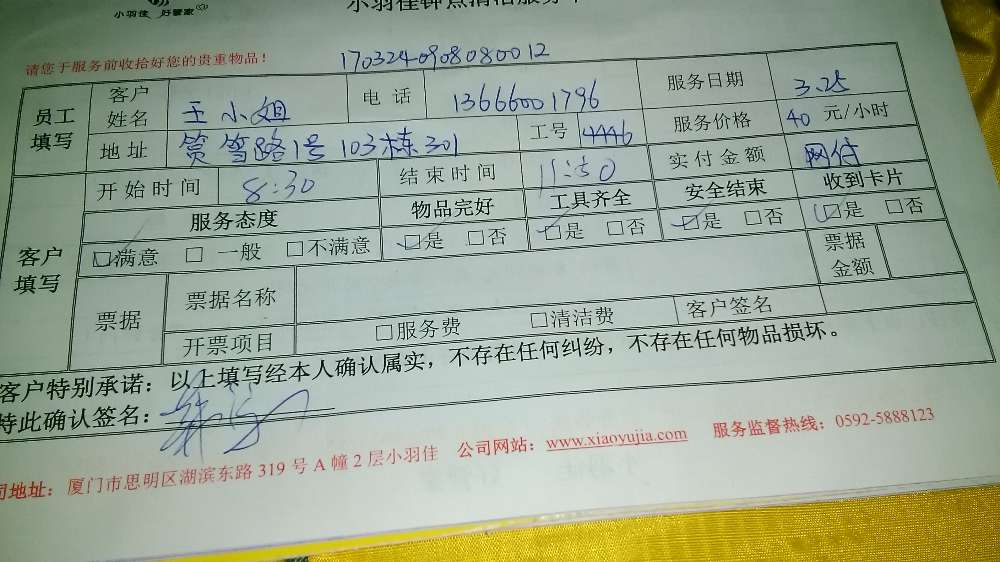 小羽佳 好管家
小羽佳钟点清洁服务单
请您于服务前收拾好您的贵重物品！
170324090808080012
员工填写 客户姓名 王小姐 电话 13666001796 服务日期 3.25
地址 筼筜路1号103栋301 工号 4446 服务价格 40 元/小时
客户填写 开始时间 8:30 结束时间 11:50 实付金额 网付
服务态度 物品完好 工具齐全 安全结束 收到卡片
☑满意 □ 一般 □不满意 ☑是 □否 ☑是 □否 ☑是 □否 ☑是 □否
票据 票据名称 票据金额
开票项目 □服务费 □清洁费 客户签名
客户特别承诺：以上填写经本人确认属实，不存在任何纠纷，不存在任何物品损坏。
特此确认签名：
司地址：厦门市思明区湖滨东路 319 号 A 幢 2 层小羽佳 公司网站：www.xiaoyujia.com 服务监督热线：0592-5888123